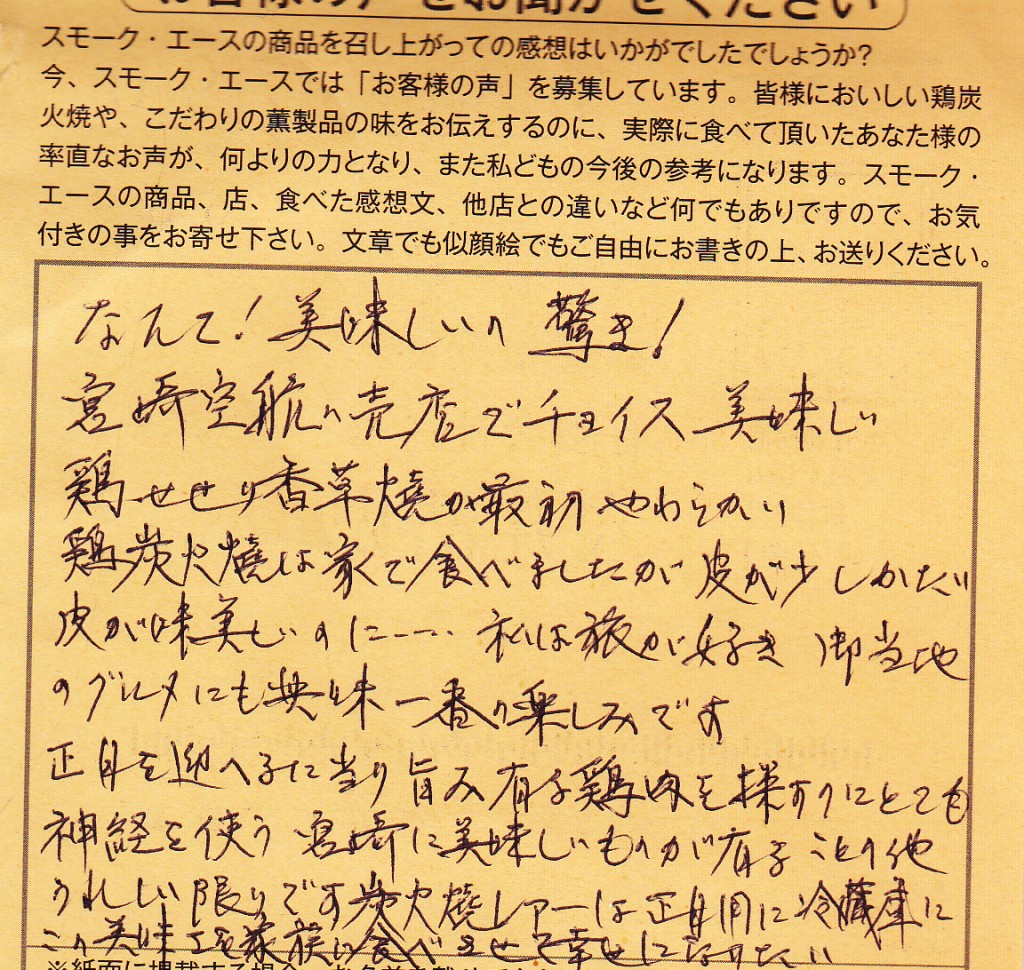 お客様の声をお聞かせください
スモーク・エースの商品を召し上がっての感想はいかがでしたでしょうか?
今、スモーク・エースでは「お客様の声」を募集しています。皆様においしい鶏炭
火焼や、こだわりの薫製品の味をお伝えするのに、実際に食べて頂いたあなた様の
率直なお声が、何よりの力となり、また私どもの今後の参考になります。スモーク・
エースの商品、店、食べた感想文、他店との違いなど何でもありですので、お気
付きの事をお寄せ下さい。文章でも似顔絵でもご自由にお書きの上、お送りください。
なんて!美味しいの 驚き!
宮崎空航の売店でチョイス 美味しい
鶏せせり香草燒が最初 やわらかい
鶏炭火燒は家で食べましたが 皮が少しかたい
皮が味美しいのに……私は旅が好き 御当地
のグルメにも興味 一番の楽しみです
正月を迎へるに当り 旨み有る鶏肉を探すのにとても
神経を使う 宮崎に美味しいものが有ることの他
うれしい限りです 炭火燒レアーは正月用に冷蔵庫に
この美味さを家族に食べさせて幸せになりたい